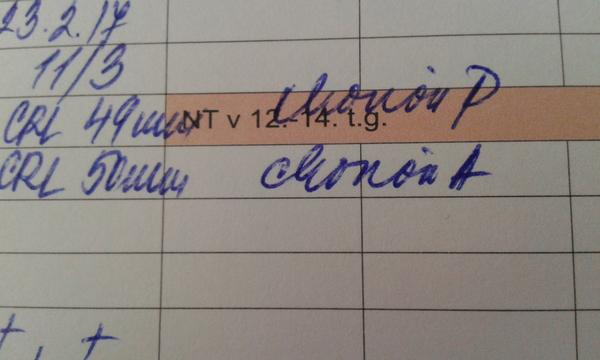 23.2.17
11/3
CRL 49mm chorión P
NT v 12.-14. t.g.
CRL 50mm chorión A
+, +